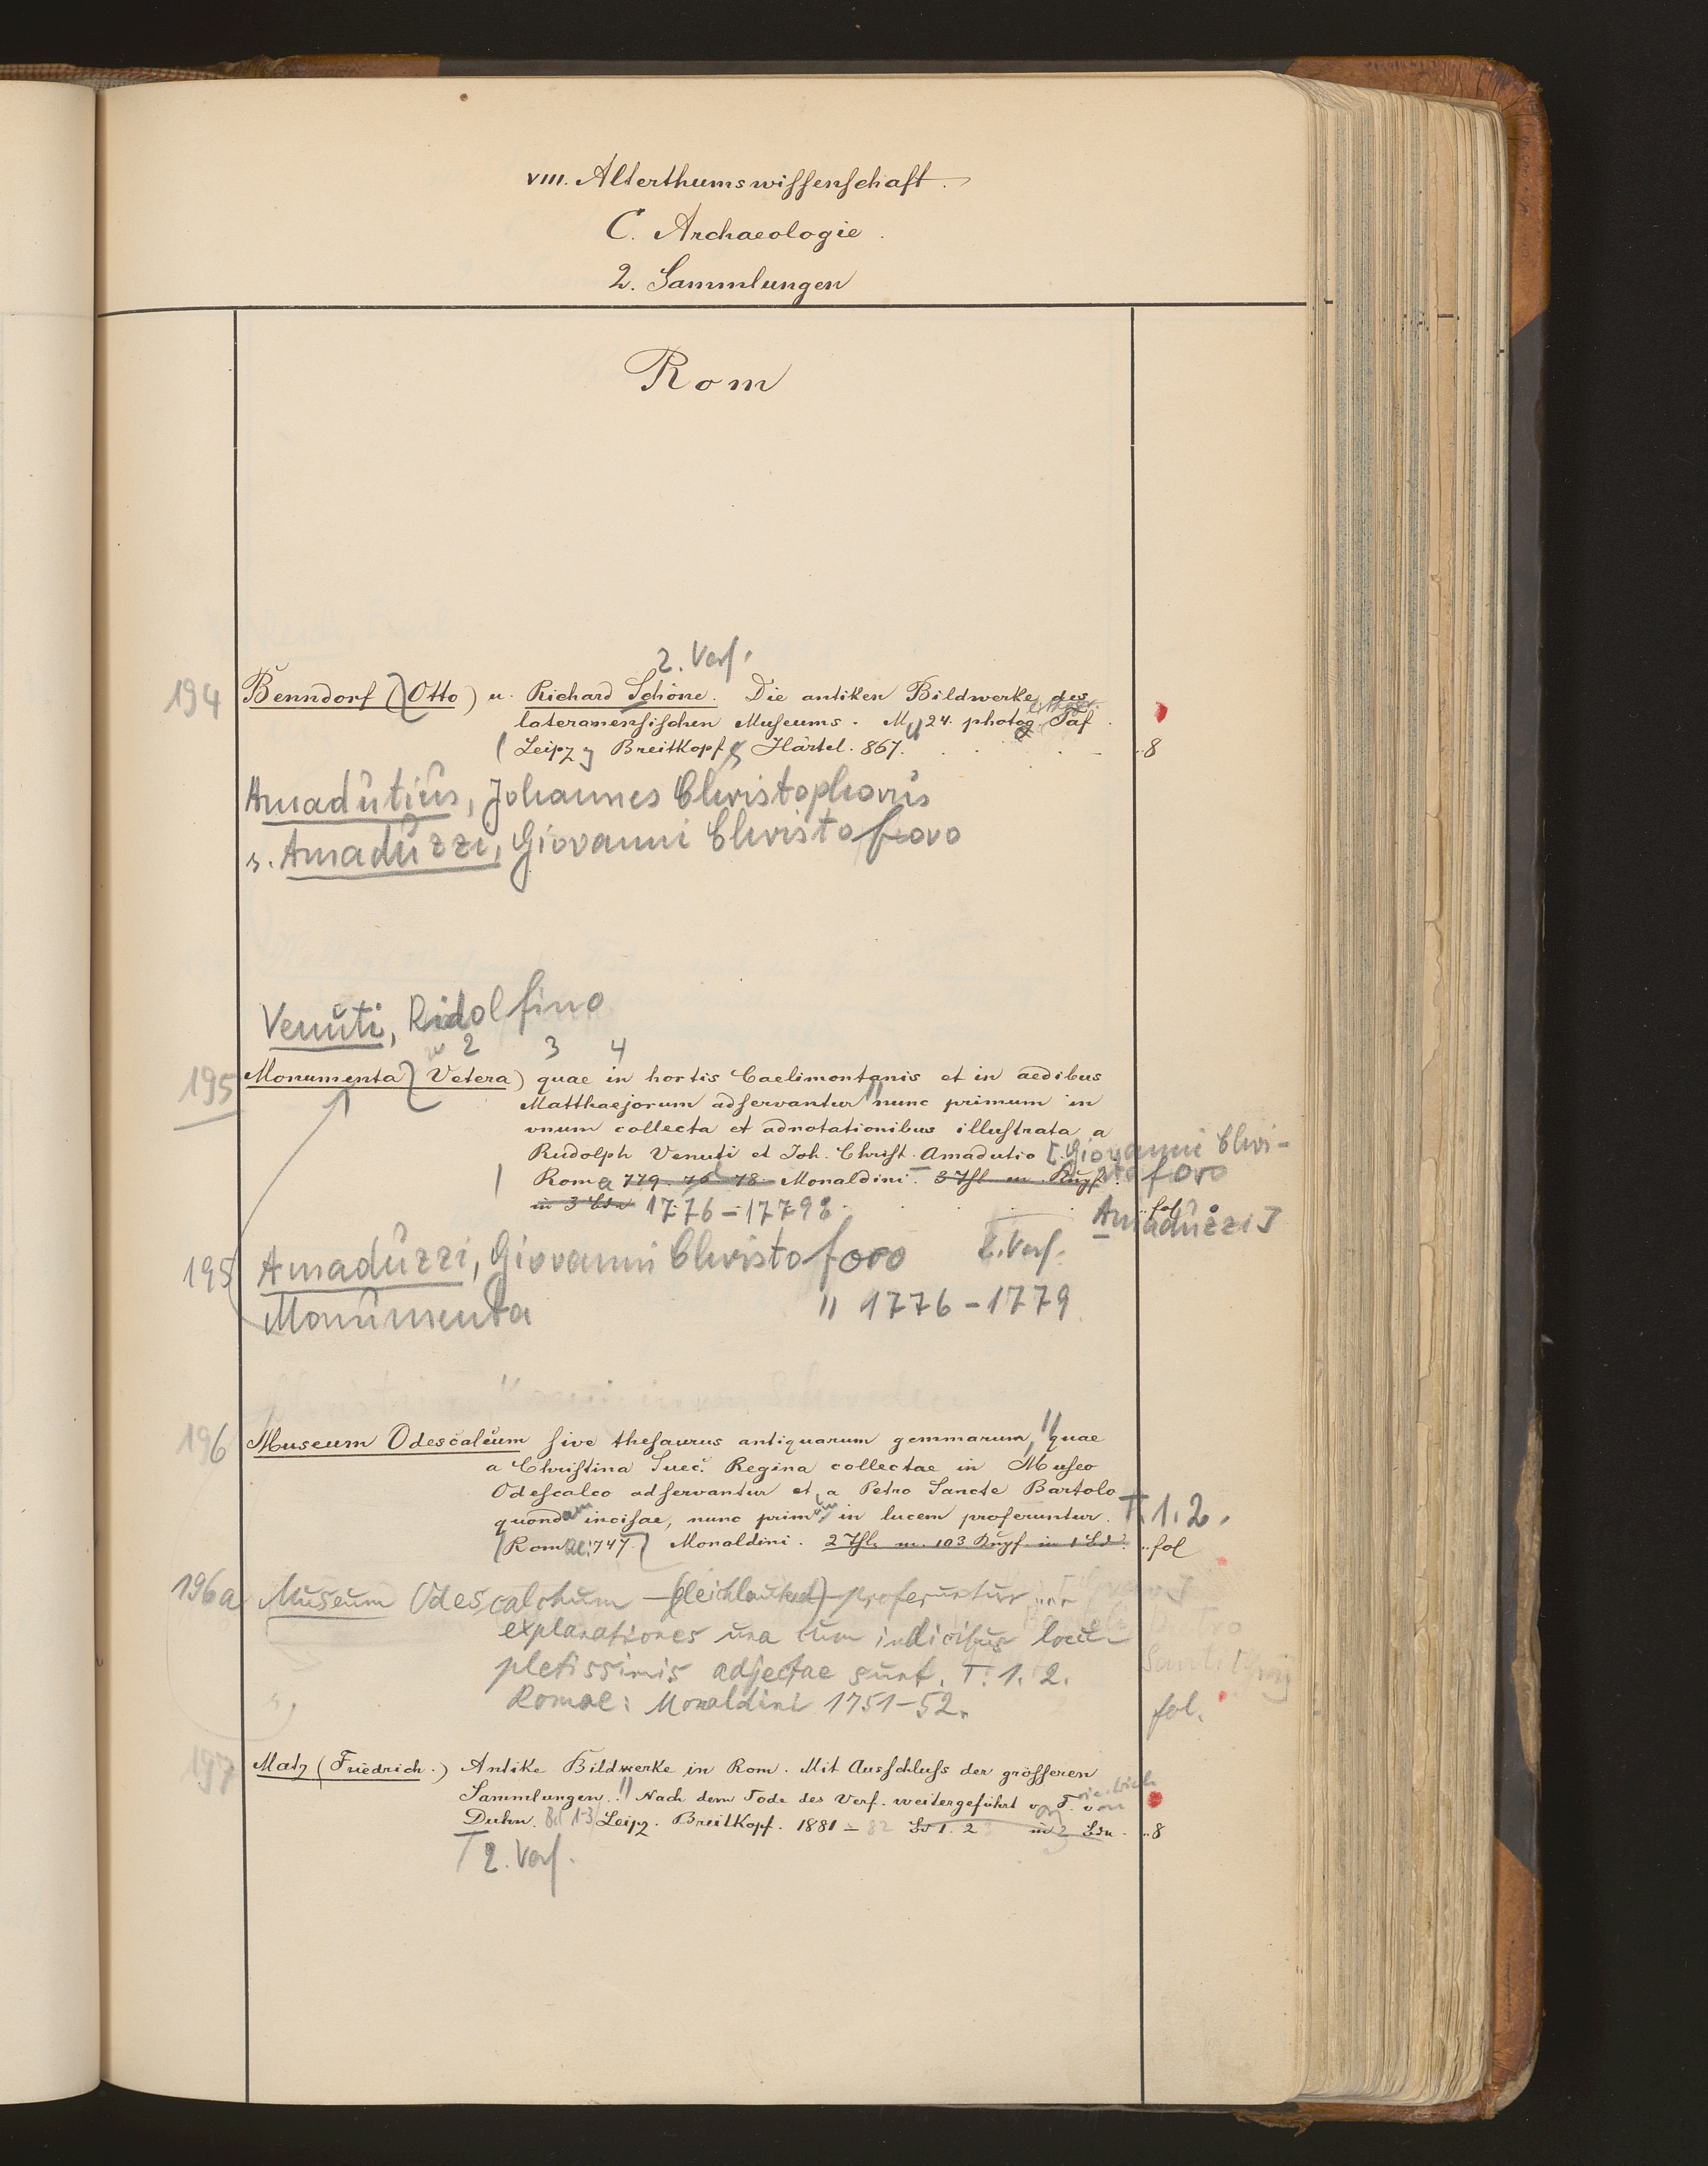 VIII. Alterthumswissenschaft.
C. Archaeologie.
2. Sammlungen
Rom
2. Verf.
194 Benndorf (Otto) u. Richard Schöne. Die antiken Bildwerke des
lateranensischen Museums. M. 24. photog. Taf.
(Leipz Breitkopf & Härtel. 867. 8
Amadutius, Johannes Christophorus
s. Amaduzzi, Giovanni Christoforo
Venuti, Ridolfino
2 3 4
195 Monumenta (Vetera) quae in hortis Caelimontanis et in aedibus
Matthaejorum adservantur // nunc primum in
unum collecta et adnotationibus illustrata a
Rudolph Venuti et Joh. Christ. Amadutio [Giovanni Chri-
stoforo
Amaduzzi]
Roma 779. 76 78 Monaldini. 3 Thl. m. Kupf.
in 3 Bdn 1776-1779 fol
195 Amaduzzi, Giovanni Christoforo 2. Verf.
Monumenta // 1776-1779
196 Museum Odescalcum sive thesaurus antiquarum gemmarum, // quae
a Christina Suec. Regina collectae in Museo
Odescalco adservantur et a Petro Sancte Bartolo
quondam incisae, nunc primum in lucem proferuntur. T. 1. 2.
(Romae 747) Monaldini. 2 Thl. m. 103 Kupf. in 1 Bd. fol
196a Museum Odescalchum (gleichlautend) proferuntur ...
explanationes una cum indicibus locu-
pletissimis adjectae sunt. T. 1. 2.
Romae: Monaldini 1751-52. fol.
197 Matz (Friedrich.) Antike Bildwerke in Rom. Mit Ausschluss der grösseren
Sammlungen. // Nach dem Tode des Verf. weitergeführt v. F. von
Duhn. Bd 1-3 Leipz. Breitkopf. 1881-82 Bd 1. 2 in 2 Bdn. 8
2. Verf.